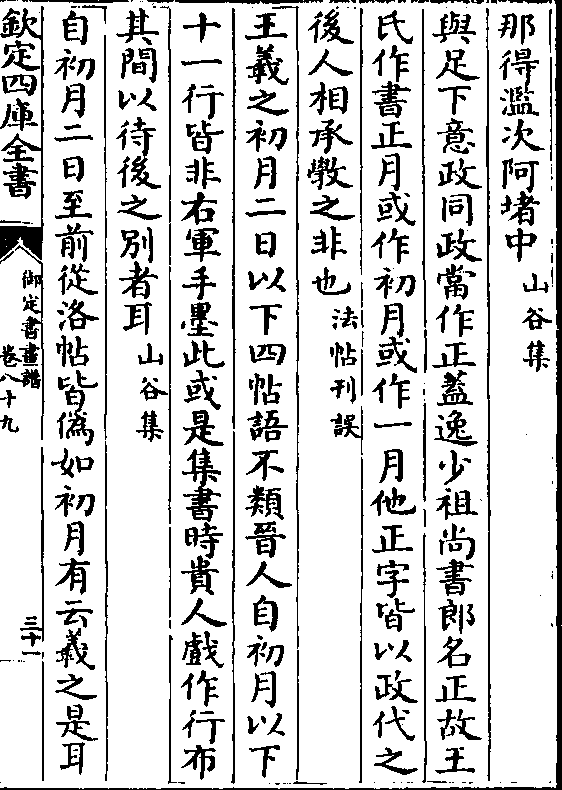 那得濫次阿堵中山谷集
與足下意政同政當作正蓋逸少祖尚書郎名正故王
氏作書正月或作初月或作一月他正字皆以政代之
後人相承斆之非也法帖刊誤
王羲之初月二日以下四帖語不類晉人自初月以下
十一行皆非右軍手墨此或是集書時貴人戲作行布
其間以待後之別者耳山谷集
自初月二日至前從洛帖皆偽如初月有云羲之是耳
欽定四庫全書
御定書畫譜
卷八十九
三十一